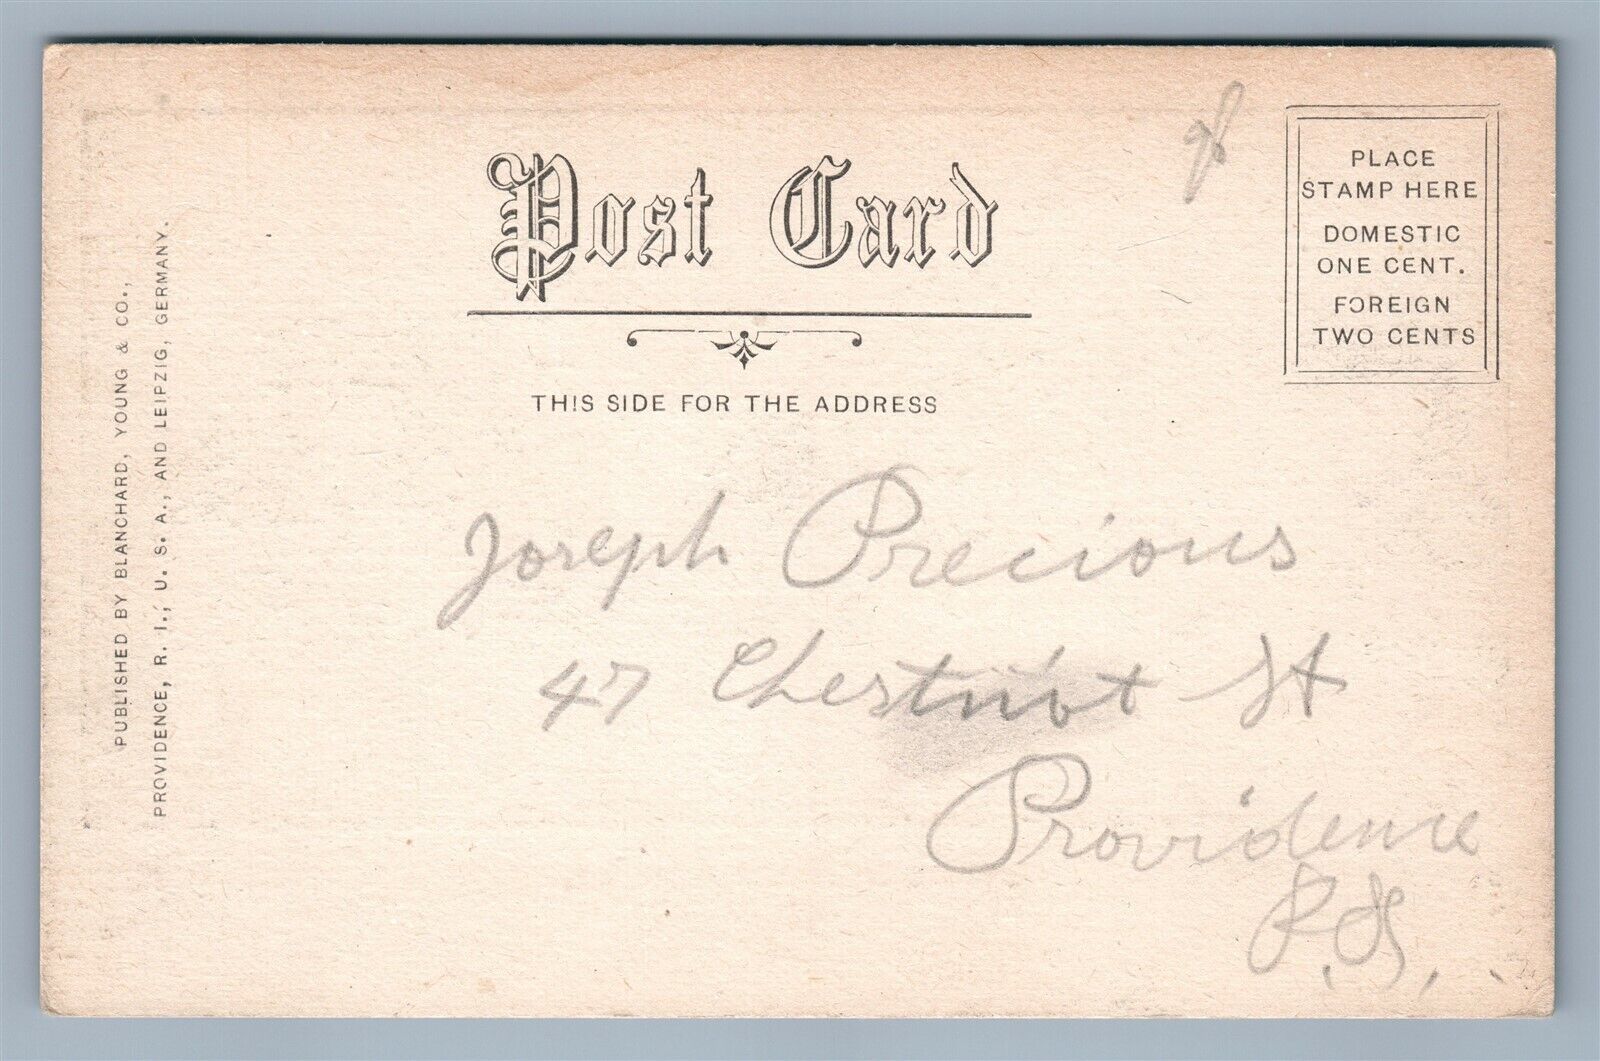 Post Card
THIS SIDE FOR THE ADDRESS
PLACE
STAMP HERE
DOMESTIC
ONE CENT.
FOREIGN
TWO CENTS
PUBLISHED BY BLANCHARD, YOUNG & CO.,
PROVIDENCE, R. I., U. S. A., AND LEIPZIG, GERMANY.
Joseph Precious
47 Chestnut St
Providence
R.I.